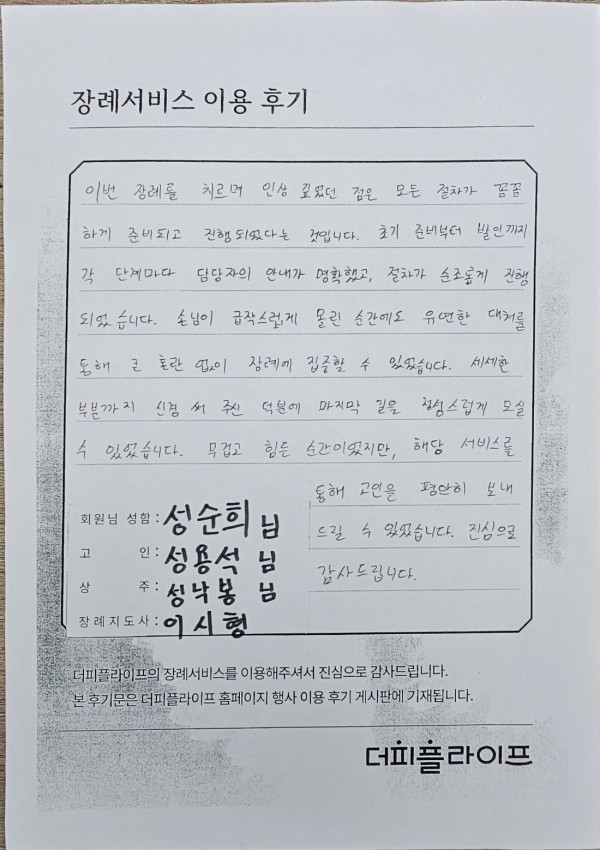 장례서비스 이용 후기
이번 장례를 치르며 인상 깊었던 점은 모든 절차가 꼼꼼
하게 준비되고 진행되었다는 것입니다. 초기 준비부터 발인까지
각 단계마다 담당자의 안내가 명확했고, 절차가 순조롭게 진행
되었습니다. 손님이 급작스럽게 몰린 순간에도 유연한 대처를
통해 큰 혼란 없이 장례에 집중할 수 있었습니다. 세세한
부분까지 신경 써 주신 덕분에 마지막 길을 정성스럽게 모실
수 있었습니다. 무겁고 힘든 순간이었지만, 해당 서비스를
통해 고인을 평안히 보내
드릴 수 있었습니다. 진심으로
감사드립니다.
회원님 성함 : 성순희 님
고 인 : 성용석 님
상 주 : 성낙봉 님
장례지도사 : 이시형
더피플라이프의 장례서비스를 이용해주셔서 진심으로 감사드립니다.
본 후기문은 더피플라이프 홈페이지 행사 이용 후기 게시판에 기재됩니다.
더피플라이프